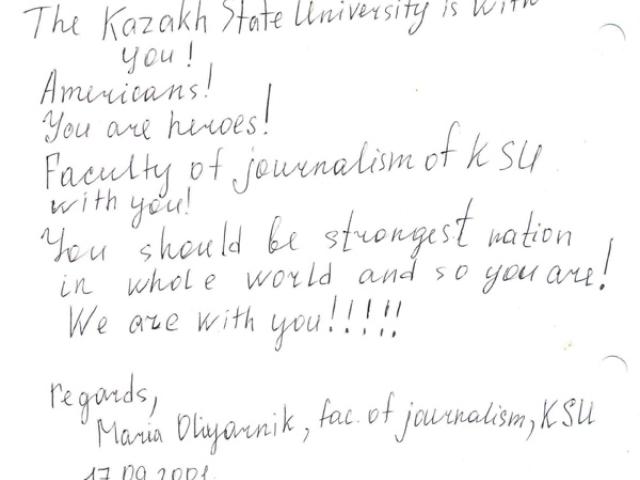 The Kazakh State University is with
you!
Americans!
You are heroes!
Faculty of journalism of KSU
with you!
You should be strongest nation
in whole world and so you are!
We are with you!!!!!
regards,
Maria Oliyarnik, fac. of journalism, KSU
17.09.2001